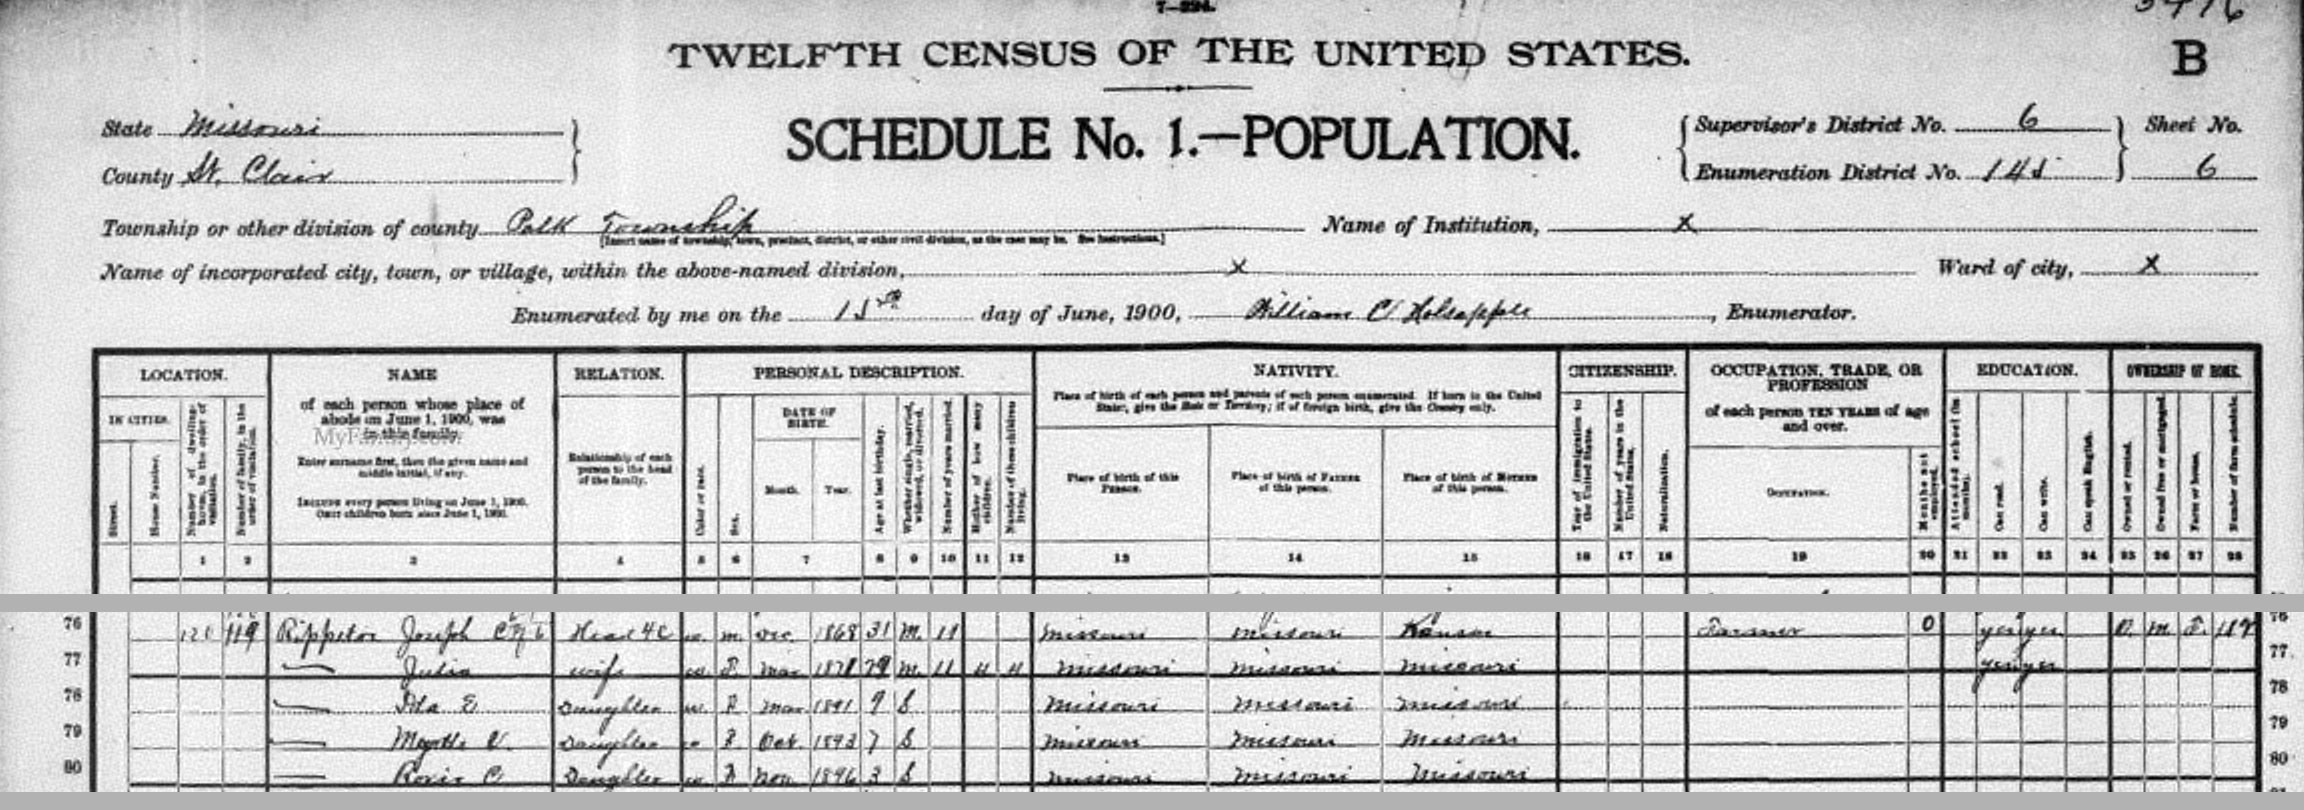 7—224.
TWELFTH CENSUS OF THE UNITED STATES.
B
State Missouri
County St. Clair
SCHEDULE No. 1.—POPULATION.
Supervisor's District No. 6 Sheet No.
Enumeration District No. 145 6
Township or other division of county Polk Township Name of Institution, X
[Insert name of township, town, precinct, district, or other civil division, as the case may be. See instructions.]
Name of incorporated city, town, or village, within the above-named division, X Ward of city, X
Enumerated by me on the 15th day of June, 1900, William C Holsapple, Enumerator.
LOCATION. NAME RELATION. PERSONAL DESCRIPTION. NATIVITY. CITIZENSHIP. OCCUPATION, TRADE, OR PROFESSION EDUCATION. OWNERSHIP OF HOME.
IN CITIES. Street. House Number. Number of dwelling-house, in the order of visitation. Number of family, in the order of visitation.
of each person whose place of abode on June 1, 1900, was in this family.
Enter surname first, then the given name and middle initial, if any.
INCLUDE every person living on June 1, 1900. OMIT children born since June 1, 1900.
Relationship of each person to the head of the family.
Color or race. Sex. DATE OF BIRTH. Month. Year. Age at last birthday. Whether single, married, widowed, or divorced. Number of years married. Mother of how many children. Number of these children living.
Place of birth of each person and parents of each person enumerated. If born in the United States, give the State or Territory; if of foreign birth, give the Country only.
Place of birth of this PERSON. Place of birth of FATHER of this person. Place of birth of MOTHER of this person.
Year of immigration to the United States. Number of years in the United States. Naturalization.
of each person TEN YEARS of age and over.
OCCUPATION. Months not employed.
Attended school (in months). Can read. Can write. Can speak English.
Owned or rented. Owned free or mortgaged. Farm or house. Number of farm schedule.
1 2 3 4 5 6 7 8 9 10 11 12 13 14 15 16 17 18 19 20 21 22 23 24 25 26 27 28
76 119 Rippetoe Joseph Head w m Dec 1868 31 M 11 Missouri Missouri Kansas Farmer 0 yes yes O M F 76
77 Julia wife w F Mar 1871 29 M 11 4 4 Missouri Missouri Missouri yes yes 77
78 Ila E Daughter w F Mar 1891 9 S Missouri Missouri Missouri 78
79 Myrtle V. Daughter w F Oct 1892 7 S Missouri Missouri Missouri 79
80 Rosie C Daughter w F Nov 1896 3 S Missouri Missouri Missouri 80